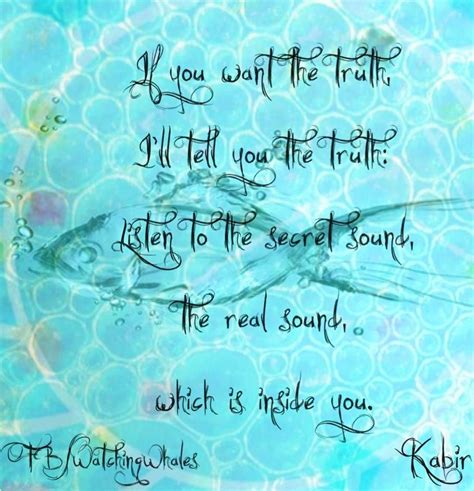 If you want the truth,
I'll tell you the truth:
Listen to the secret sound,
the real sound,
which is inside you.
FB/WatchingWhales
Kabir